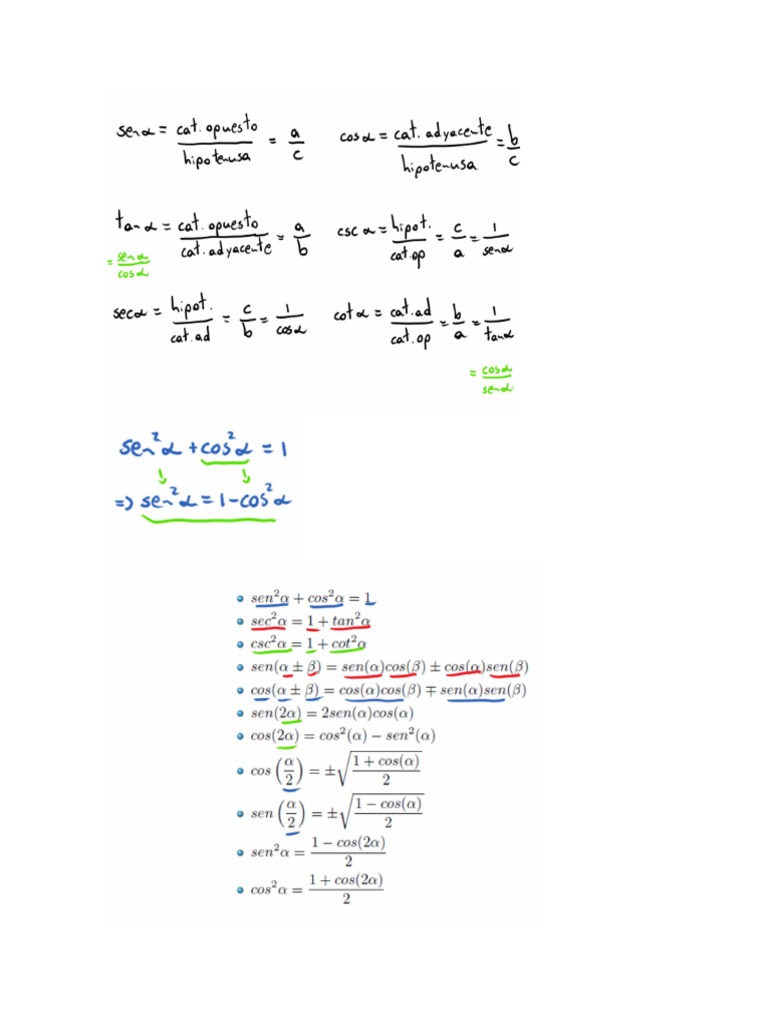 senα = cat. opuesto / hipotenusa = a/c    cosα = cat. adyacente / hipotenusa = b/c
tanα = cat. opuesto / cat. adyacente = a/b    cscα = hipot. / cat. op = c/a = 1/senα
= senα/cosα
secα = hipot. / cat. ad = c/b = 1/cosα    cotα = cat. ad / cat. op = b/a = 1/tanα
= cosα/senα
sen²α + cos²α = 1
=> sen²α = 1 - cos²α
• sen²α + cos²α = 1
• sec²α = 1 + tan²α
• csc²α = 1 + cot²α
• sen(α ± β) = sen(α)cos(β) ± cos(α)sen(β)
• cos(α ± β) = cos(α)cos(β) ∓ sen(α)sen(β)
• sen(2α) = 2sen(α)cos(α)
• cos(2α) = cos²(α) − sen²(α)
• cos(α/2) = ±√((1 + cos(α))/2)
• sen(α/2) = ±√((1 − cos(α))/2)
• sen²α = (1 − cos(2α))/2
• cos²α = (1 + cos(2α))/2